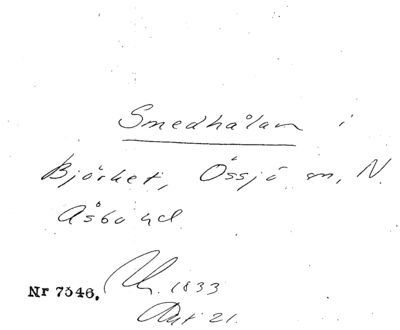 Smedhålan i
Björket, Össjö m, N.
Åsbo hd.
Nr 7546. 1833
21.